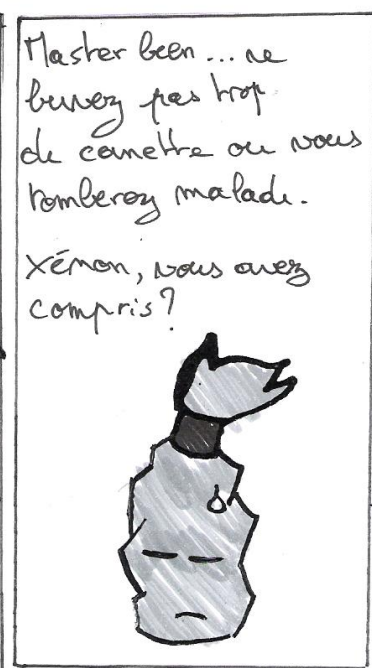 Master been... ne
buvez pas trop
de canette ou vous
tomberez malade.
Xémon, vous avez
compris?